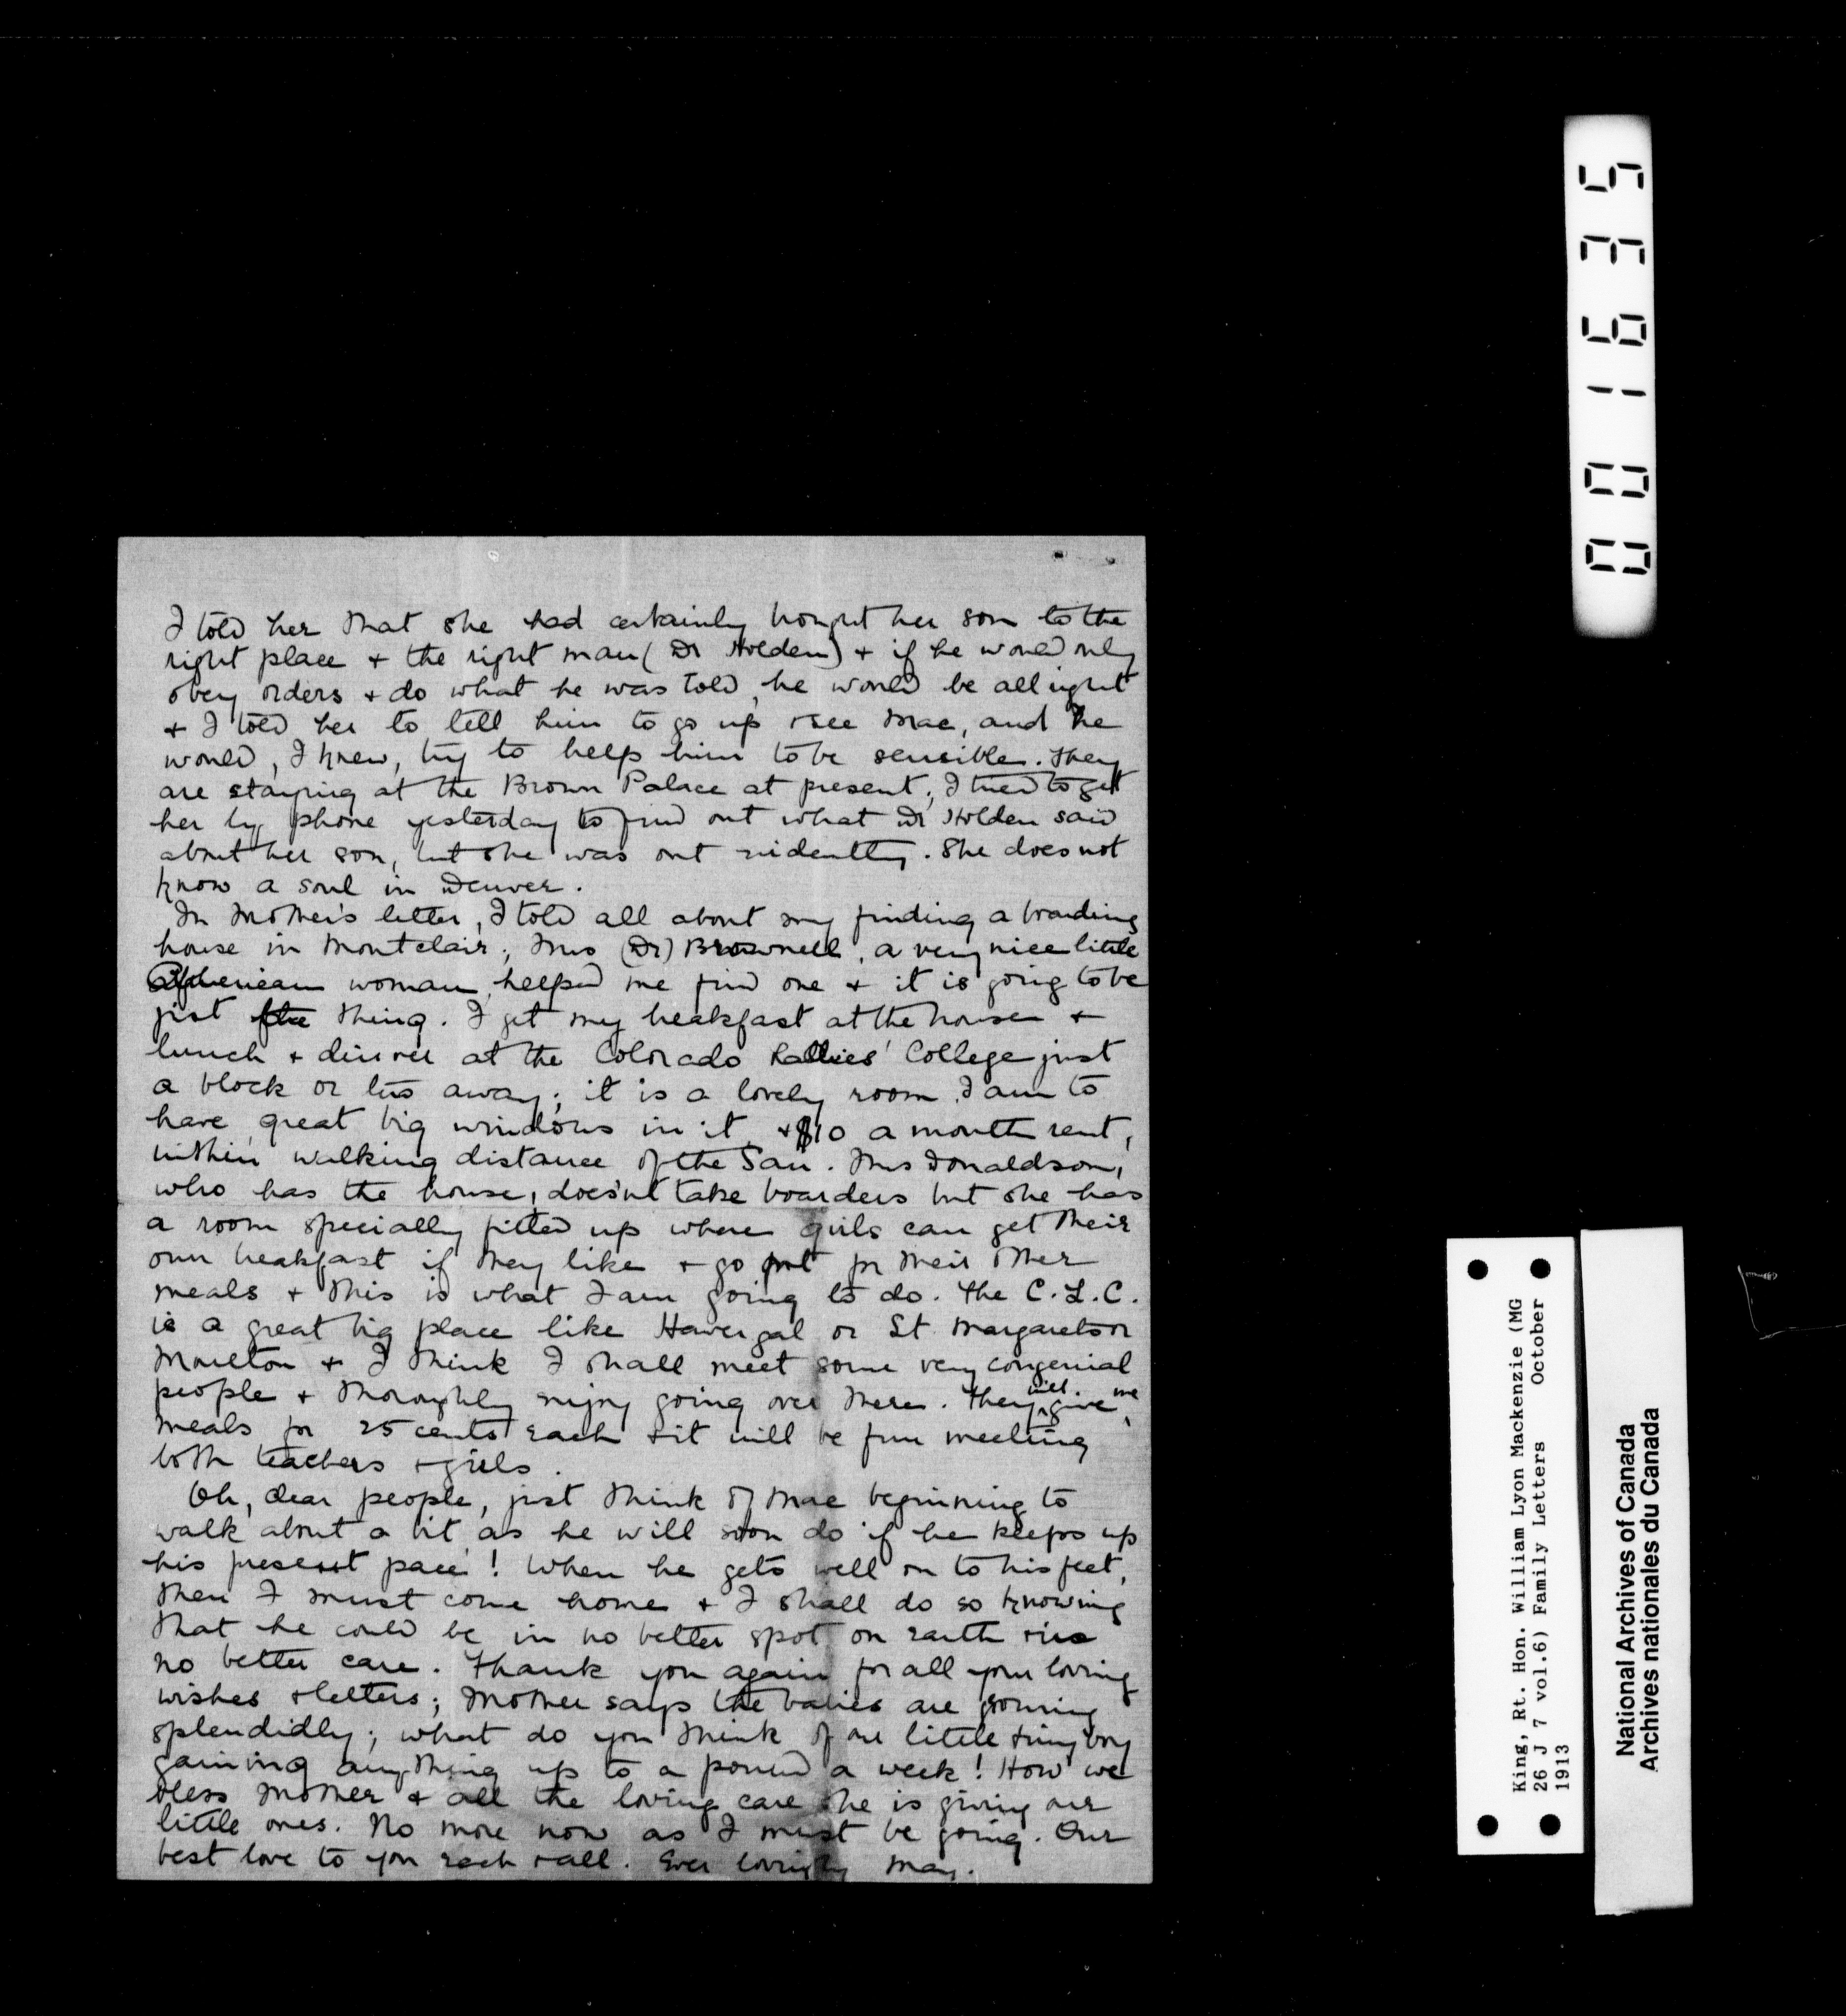 I told her that she had certainly brought her son to the
right place + the right man (Dr Holden) + if he would only
obey orders + do what he was told, he would be all right
+ I told her to tell him to go up + see Mac, and he
would, I knew, try to help him to be sensible. They
are staying at the Brown Palace at present; I tried to get
her by phone yesterday to find out what Dr Holden said
about her son, but she was out evidently. She does not
know a soul in Denver.
In Mother's letter, I told all about my finding a boarding
house in Montclair; Mrs (Dr) Brownell, a very nice little
American woman, helped me find one + it is going to be
just the thing. I get my breakfast at the house +
lunch + dinner at the Colorado Ladies' College just
a block or two away; it is a lovely room I am to
have, great big windows in it, + $10 a month rent,
within walking distance of the San. Mrs Donaldson,
who has the house, doesn't take boarders but she has
a room specially fitted up where girls can get their
own breakfast if they like + go out for their other
meals + this is what I am going to do. The C.L.C.
is a great big place like Havergal or St. Margarets or
Moulton + I think I shall meet some very congenial
people + thoroughly enjoy going over there. They will give me
meals for 25 cents each + it will be fun meeting
both teachers + girls.
Oh, dear people, just think of Mac beginning to
walk about a bit, as he will soon do if he keeps up
his present pace! When he gets well on to his feet,
then I must come home + I shall do so knowing
that he could be in no better spot on earth + in
no better care. Thank you again for all your loving
wishes + letters; Mother says the babies are growing
splendidly; what do you think of one little tiny boy
gaining anything up to a pound a week! How we
bless Mother + all the loving care she is giving our
little ones. No more now as I must be going. Our
best love to you each + all. Ever lovingly May.
001635
King, Rt. Hon. William Lyon Mackenzie (MG
26 J 7 vol.6) Family Letters October
1913
National Archives of Canada
Archives nationales du Canada